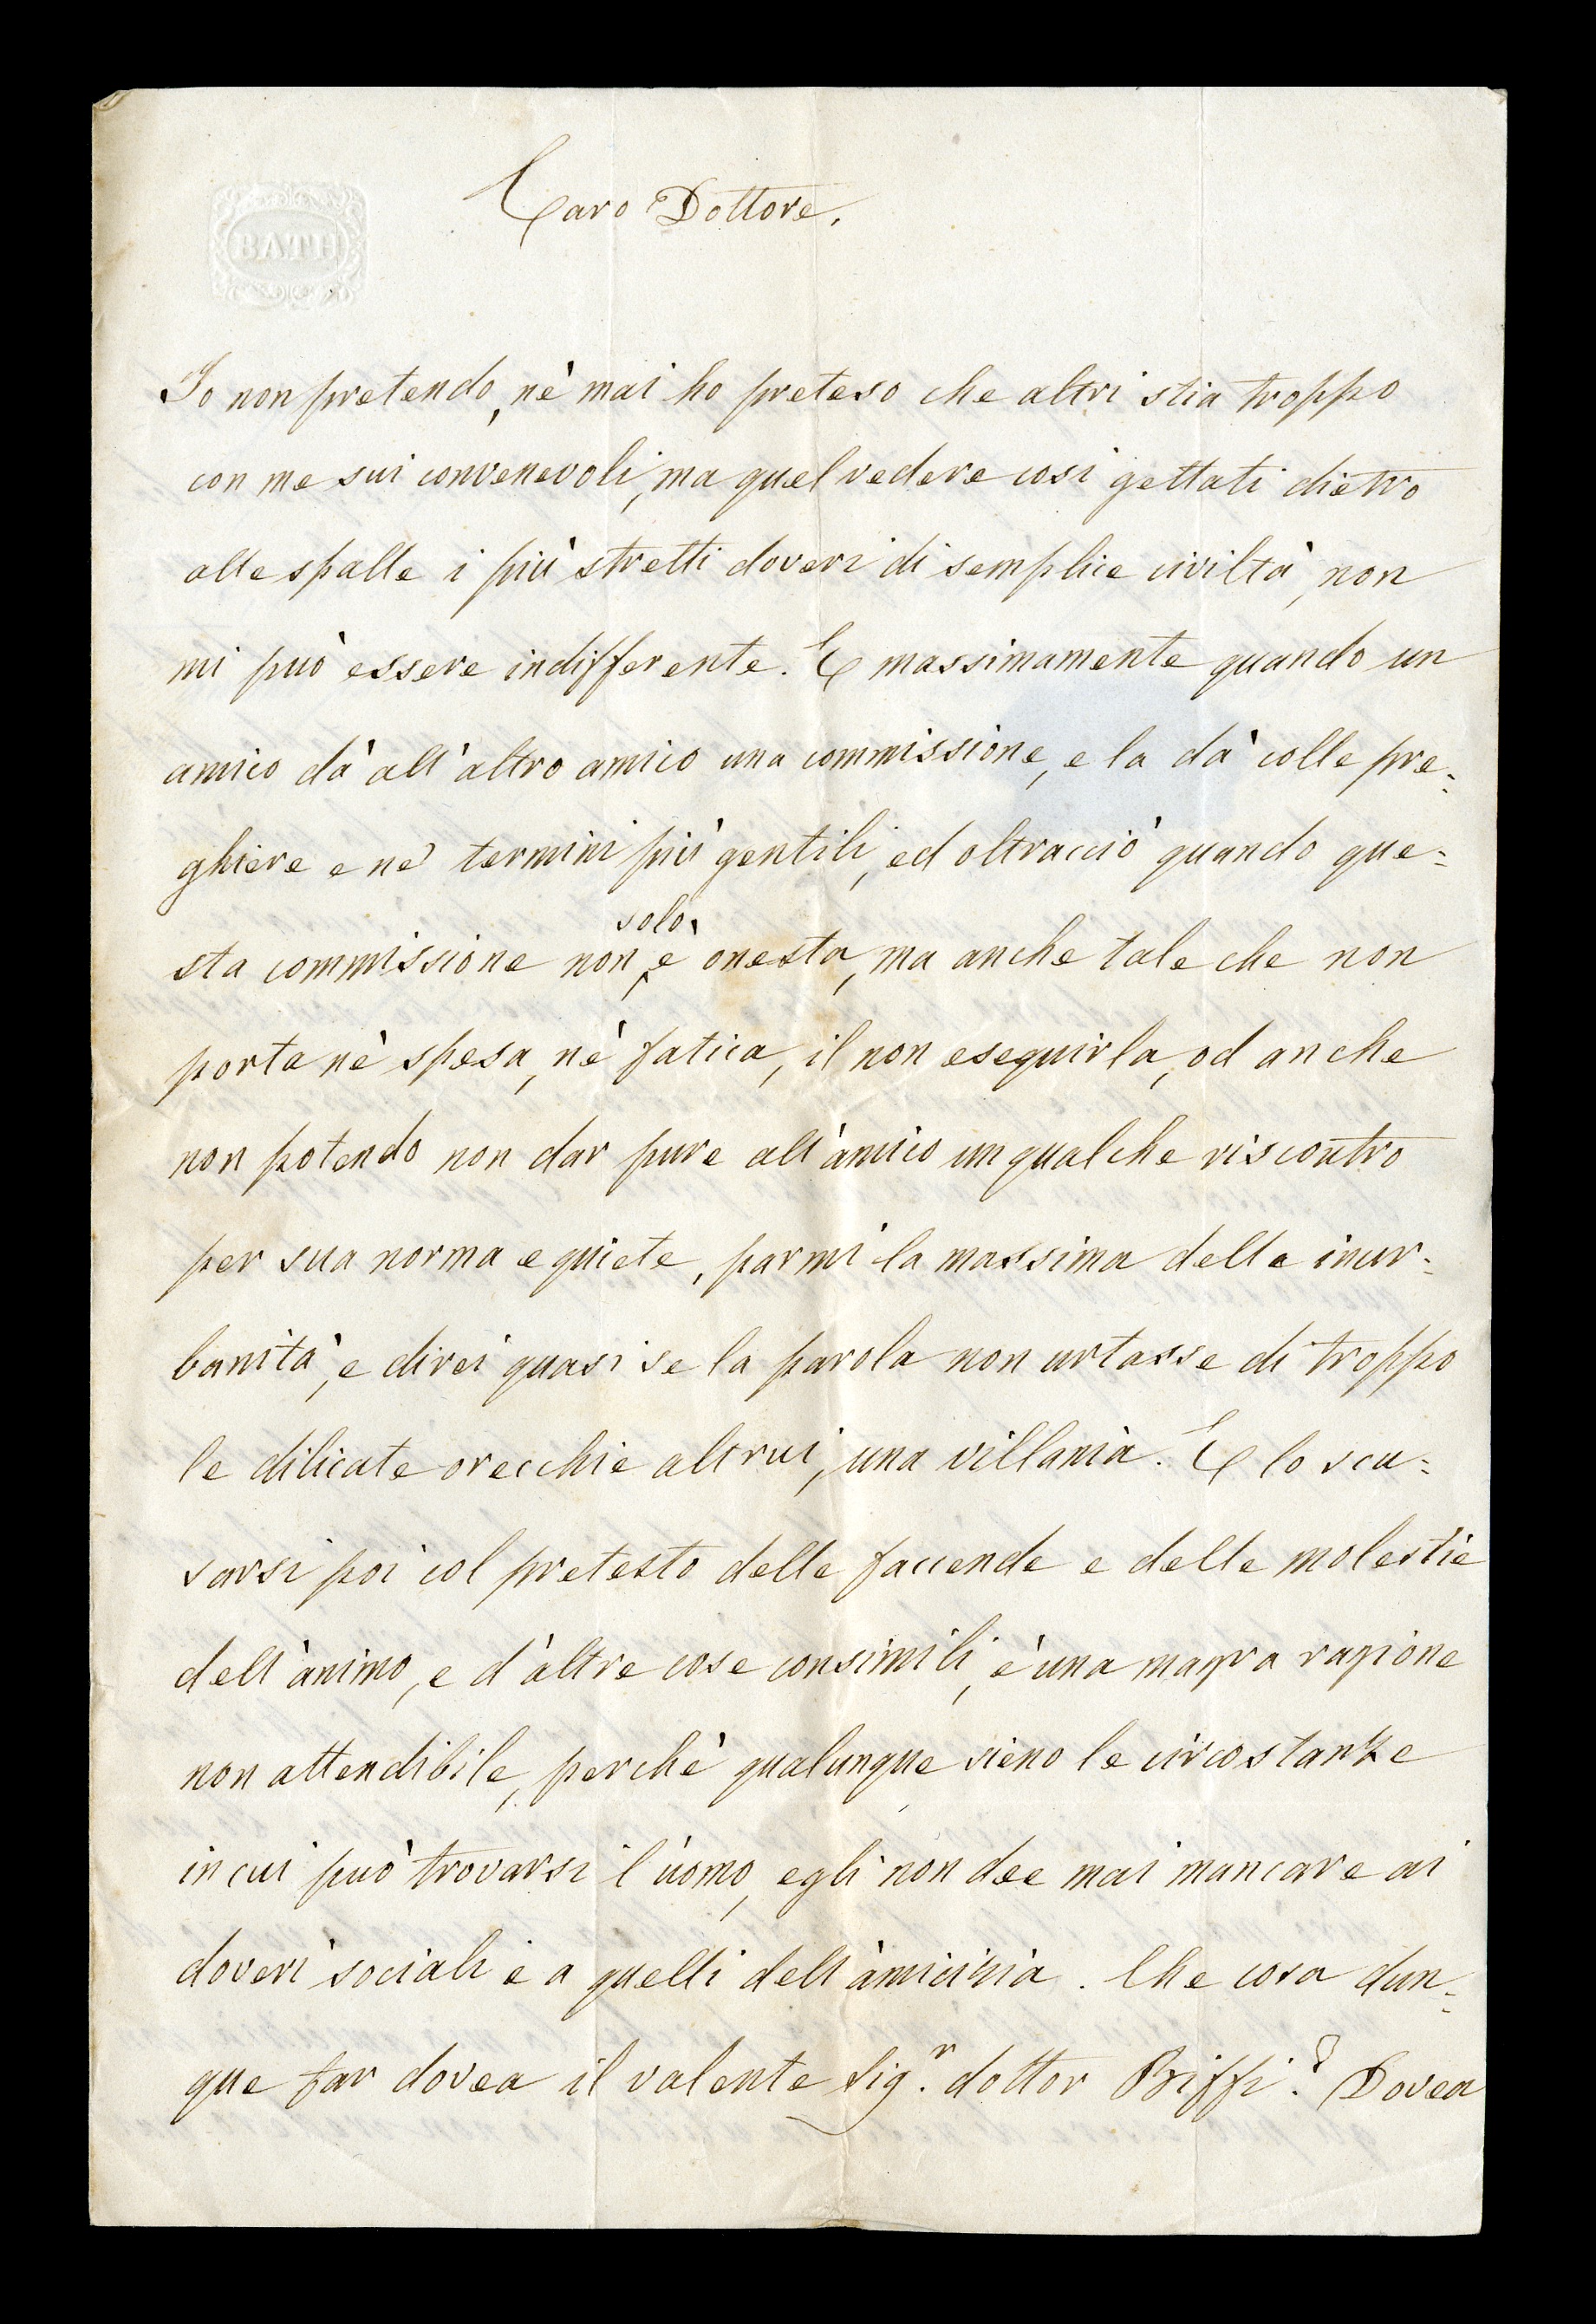 BATH
Caro Dottore.
Io non pretendo, nè mai ho preteso che altri stia troppo
con me sui convenevoli, ma quel vedere così gettati dietro
alle spalle i più stretti doveri di semplice civiltà, non
mi può essere indifferente. E massimamente quando un
amico dà all'altro amico una commissione, e la dà colle pre=
ghiere e ne' termini più gentili, ed oltracciò quando que=
sta commissione non solo è onesta, ma anche tale che non
porta nè spesa, nè fatica, il non eseguirla, od anche
non potendo non dar pure all'amico un qualche riscontro
per sua norma e quiete, parmi la massima delle inur=
banità, e direi quasi se la parola non urtasse di troppo
le dilicate orecchie altrui, una villania. E lo scu=
sarsi poi col pretesto delle faccende e delle molestie
dell'animo, e d'altre cose consimili, è una magra ragione
non attendibile, perchè qualunque sieno le circostanze
in cui può trovarsi l'uomo, egli non dee mai mancare ai
doveri sociali e a quelli dell'amicizia. Che cosa dun=
que far dovea il valente Sig.r dottor Biffi? Dovea